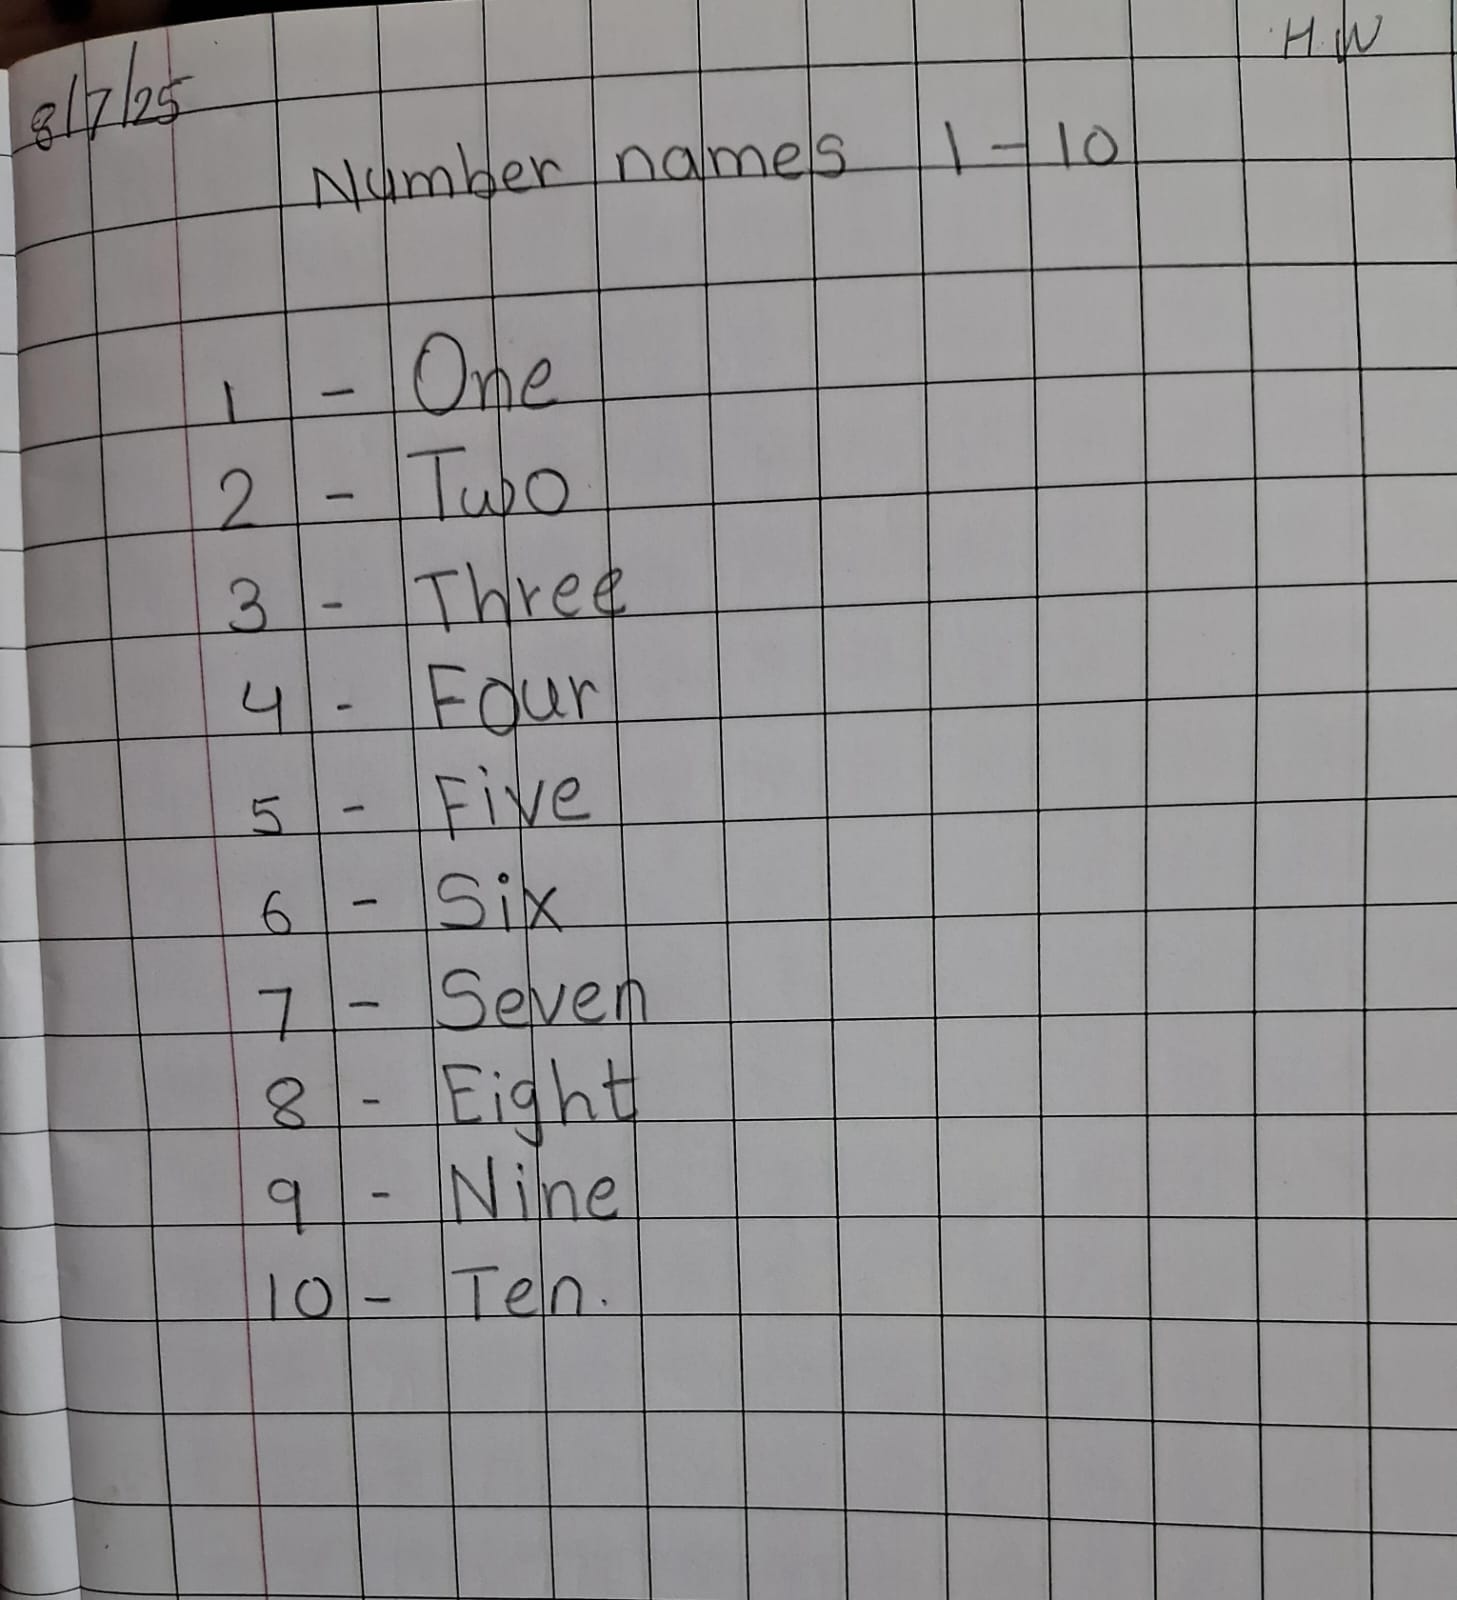 H.W
8/7/25
Number names 1 - 10
1 - One
2 - Two
3 - Three
4 - Four
5 - Five
6 - Six
7 - Seven
8 - Eight
9 - Nine
10 - Ten.